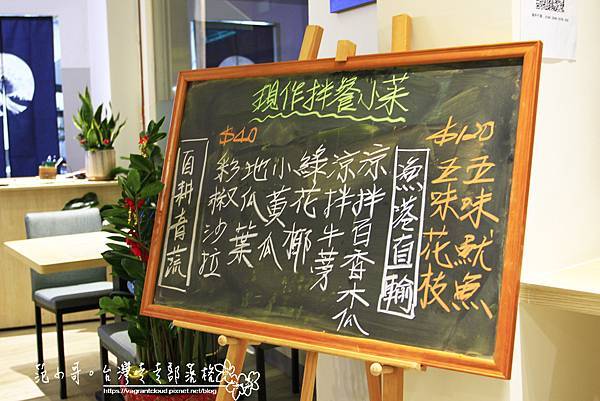 現作拌餐小菜
$120
五味魷魚
五味花枝
漁港直輸
$40
涼拌百香木瓜
涼拌牛蒡
綠花椰
小黃瓜
地瓜葉
彩椒沙拉
自耕育蔬
范小哥。台灣走走部落格
https://vagrantcloud.pixnet.net/blog